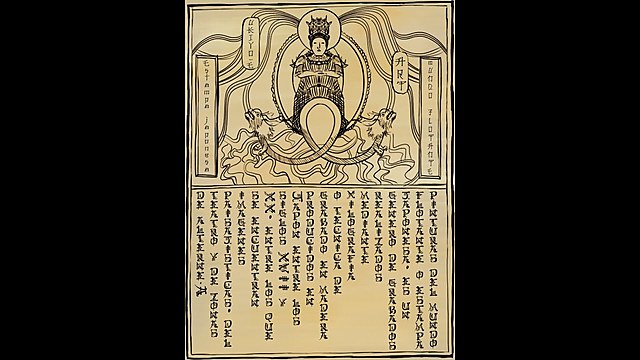 UKIYO-E
ART
Estampa japonesa
MUNDO FLOTANTE
PINTURAS DEL MUNDO
FLOTANTE O ESTAMPA
JAPONESA, ES UN
GENERO DE GRABADOS
REALIZADOS
MEDIANTE
XILOGRAFIA
O TECNICA DE
GRABADO EN MADERA
PRODUCIDOS EN
JAPON ENTRE LOS
SIGLOS XVII Y
XX, ENTRE LOS QUE
SE ENCUENTRAN
IMAGENES
PAISAJISTICAS, DEL
TEATRO Y DE ZONAS
DE ALTERNE.